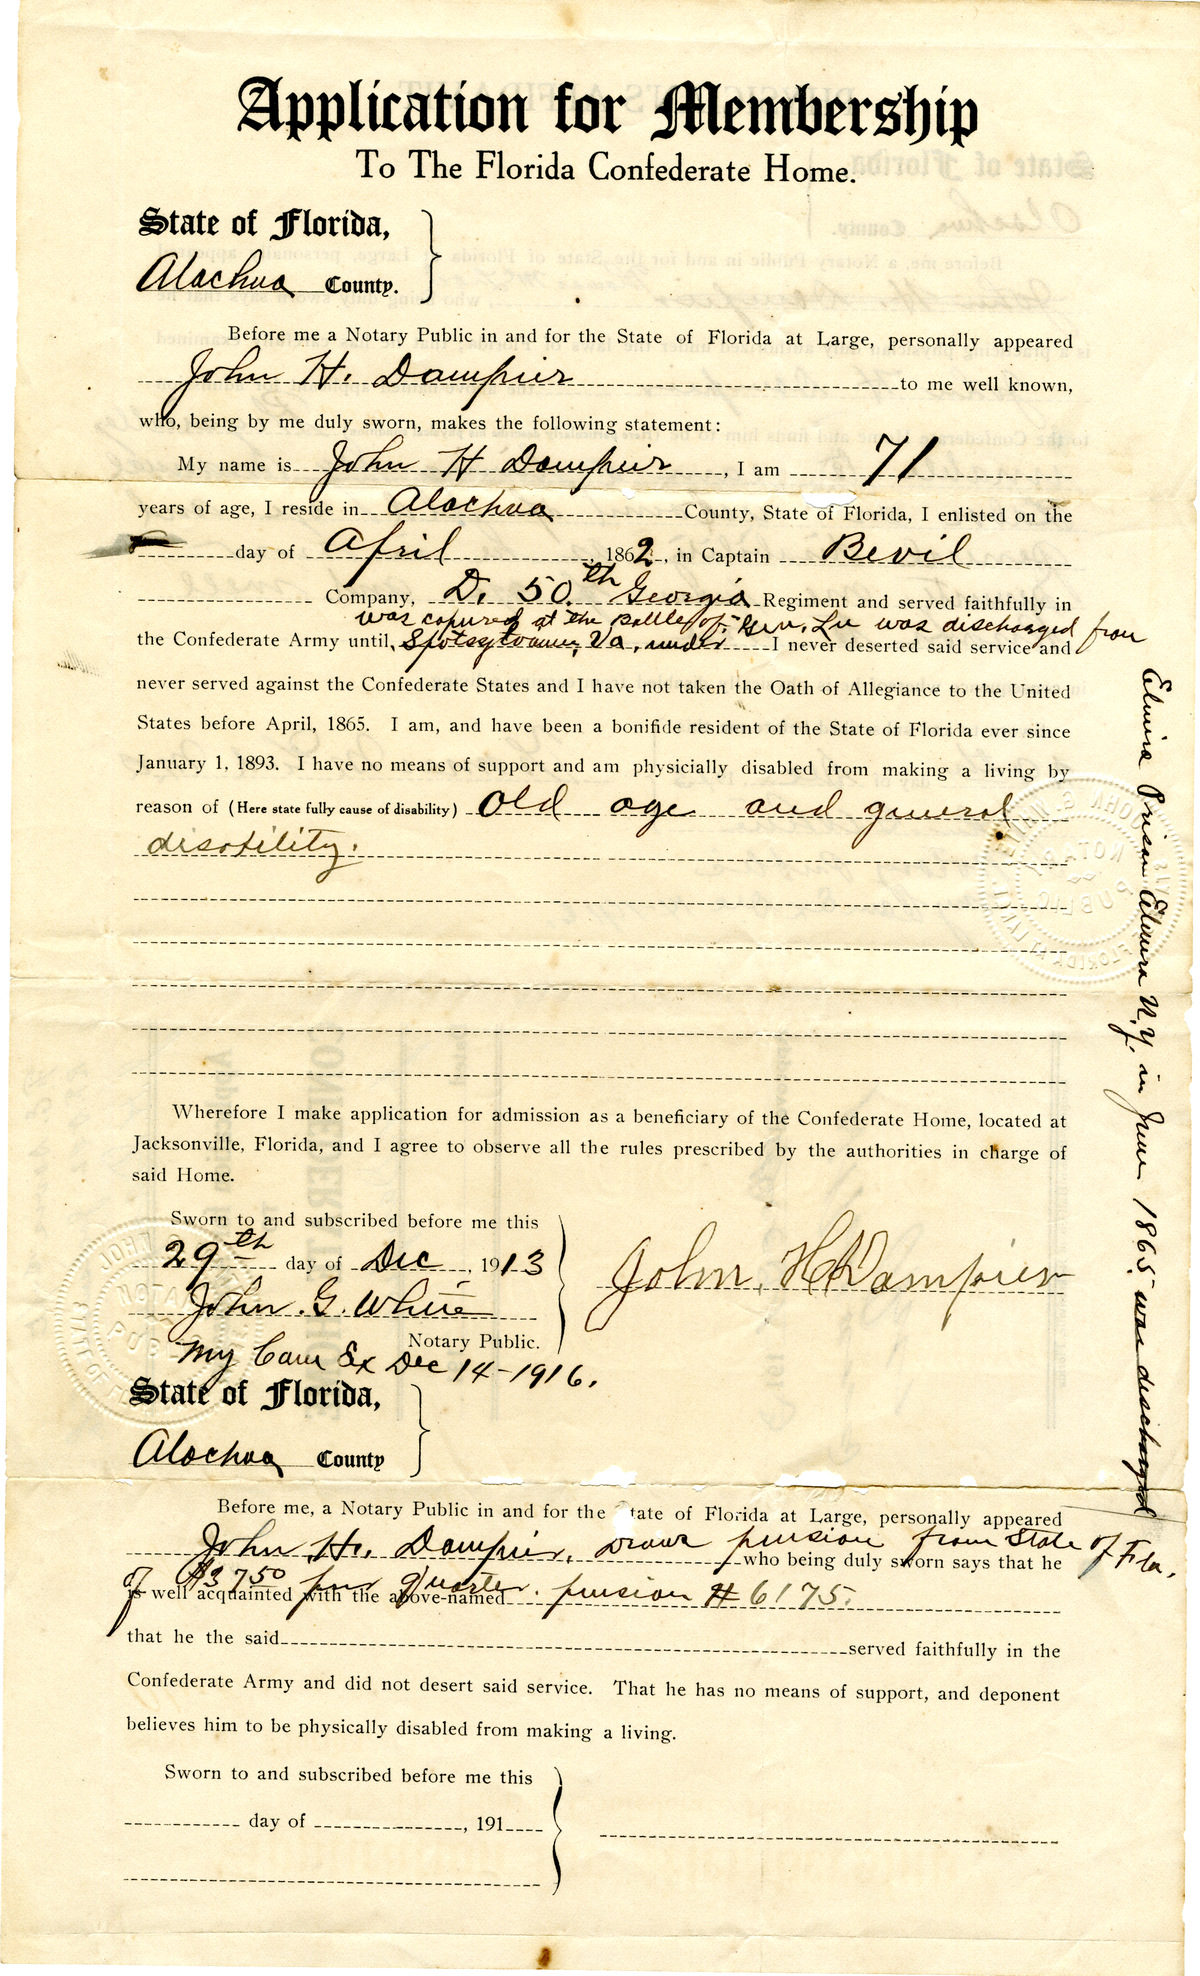 Application for Membership
To The Florida Confederate Home.
State of Florida,
Alachua County.
Before me a Notary Public in and for the State of Florida at Large, personally appeared
John H. Dampier to me well known,
who, being by me duly sworn, makes the following statement:
My name is John H Dampier, I am 71
years of age, I reside in Alachua County, State of Florida, I enlisted on the
day of April, 1862, in Captain Bevil
Company, D. 50th Georgia Regiment and served faithfully in
was capured at the battle of Gen. Lee was discharged from
the Confederate Army until, Spotsylvania, Va, under I never deserted said service and
never served against the Confederate States and I have not taken the Oath of Allegiance to the United
States before April, 1865. I am, and have been a bonifide resident of the State of Florida ever since
January 1, 1893. I have no means of support and am physicially disabled from making a living by
reason of (Here state fully cause of disability) Old age and general
disability.
Elmira Prison Elmira N.Y. in June 1865 was discharged
Wherefore I make application for admission as a beneficiary of the Confederate Home, located at
Jacksonville, Florida, and I agree to observe all the rules prescribed by the authorities in charge of
said Home.
Sworn to and subscribed before me this
29th day of Dec, 1913
John H Dampier
John. G. White
Notary Public.
My Com Ex Dec 14-1916.
State of Florida,
Alachua County
Before me, a Notary Public in and for the State of Florida at Large, personally appeared
John H. Dampier, draws pension from State of Fla.
who being duly sworn says that he
of $37.50 per Quarter. pension # 6175.
is well acquainted with the above-named
that he the said served faithfully in the
Confederate Army and did not desert said service. That he has no means of support, and deponent
believes him to be physically disabled from making a living.
Sworn to and subscribed before me this
day of , 191